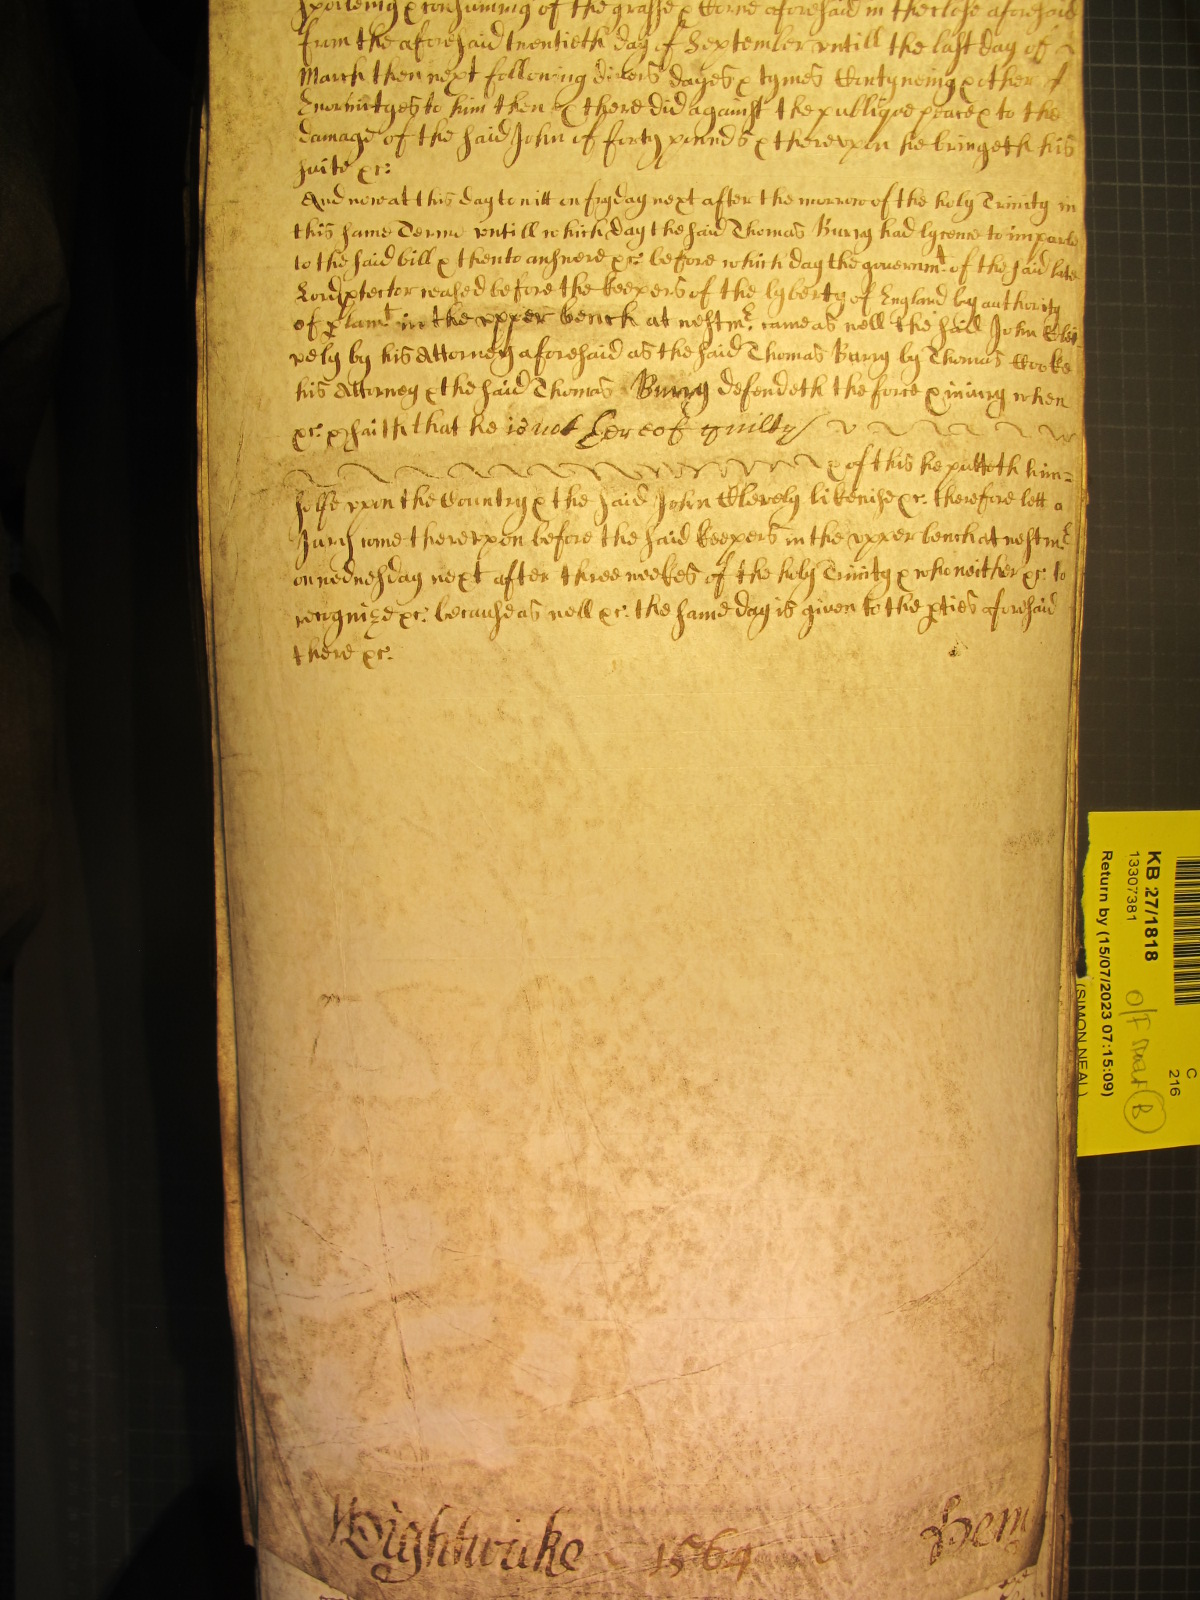 spoileing & consuming of the grasse & Corne aforesaid in the close aforesaid
from the aforesaid twentieth day of September untill the last day of
March then next following divers dayes & tymes Contynuing & other
Enormityes to him then & there did against the publique peace & to the
damage of the said John of forty pounds & thereupon he bringeth his
suite &c:
And now at this day to witt on fryday next after the morrow of the holy Trinity in
this same Terme untill which day the said Thomas Burry had lycence to imparle
to the said bill & then to answere &c: before which day the governmt. of the said late
Lord ptector ceased before the keepers of the lyberty of England by authority
of plamt. in the upper bench at westmr. came as well the said John Cle
vely by his Attorney aforesaid as the said Thomas Burry by Thomas Cooke
his Attorney & the said Thomas Burry defendeth the force & iniury when
&c: & saith that he is not thereof guilty
& of this he putteth him=
selfe upon the Country & the said John Clevely likewise &c: therefore lett a
Jury come thereupon before the said keepers in the upper bench at westmr.
on wednesday next after three weekes of the holy Trinity & who neither &c: to
recognize &c: because as well &c: the same day is given to the pties aforesaid
there &c:
Wightwicke 1564 Hem
KB 27/1818
13307381
Return by (15/07/2023 07:15:09)
(SIMON NEAL)
C
216
B